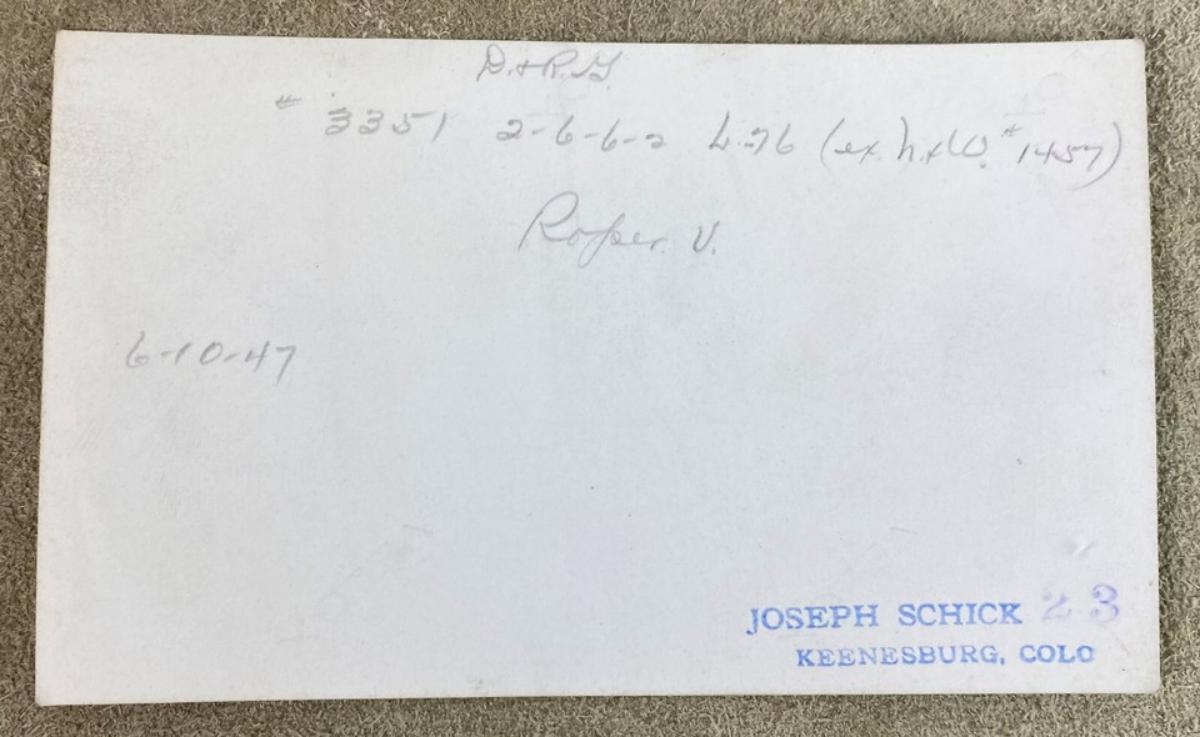 D.&R.G.
# 3351 2-6-6-2 L-76 (ex. N.&W. #1457)
Roper. U.
6-10-47
JOSEPH SCHICK 23
KEENESBURG, COLO